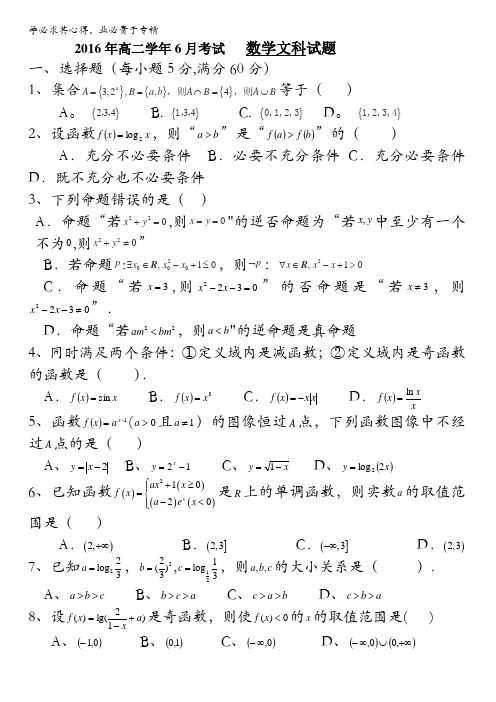 学必求其心得，业必贵于专精
2016年高二学年6月考试 数学文科试题
一、选择题（每小题5分,满分60分）
1、集合A={3,2^a},B={a,b}，则A∩B={4}，则A∪B等于（ ）
A。 {2,3,4} B. {1,3,4} C. {0,1,2,3} D。 {1,2,3,4}
2、设函数f(x)=log₂x，则“a>b”是“f(a)>f(b)”的（ ）
A．充分不必要条件 B．必要不充分条件 C．充分必要条件
D．既不充分也不必要条件
3、下列命题错误的是（ ）
A．命题“若x²+y²=0,则x=y=0"的逆否命题为“若x,y中至少有一个
不为0,则x²+y²≠0”
B．若命题p:∃x₀∈R,x₀²-x₀+1≤0，则¬p：∀x∈R,x²-x+1>0
C．命题“若x=3,则x²-2x-3=0”的否命题是“若x≠3，则
x²-2x-3≠0”．
D．命题“若am²<bm²，则a<b"的逆命题是真命题
4、同时满足两个条件：①定义域内是减函数；②定义域内是奇函数
的函数是（ ）．
A．f(x)=sin x B．f(x)=x³ C．f(x)=-x|x| D．f(x)=ln x/x
5、函数f(x)=a^(x-1)(a>0且a≠1）的图像恒过A点，下列函数图像中不经
过A点的是（ ）
A、y=x-2 B、y=2^x-1 C、y=√(1-x) D、y=log₂(2x)
6、已知函数f(x)={ax²+1(x≥0) (a-2)e^x(x<0)是R上的单调函数，则实数a的取值范
围是（ ）
A．(2,+∞) B．(2,3] C．(-∞,3] D．(2,3)
7、已知a=log₂ 2/3，b=(2/3)²,c=log_(1/2) 1/3，则a,b,c的大小关系是（ ）．
A、a>b>c B、b>c>a C、c>a>b D、c>b>a
8、设f(x)=lg(2/(1-x)+a)是奇函数，则使f(x)<0的x的取值范围是( )
A、(-1,0) B、(0,1) C、(-∞,0) D、(-∞,0)∪(0,+∞)